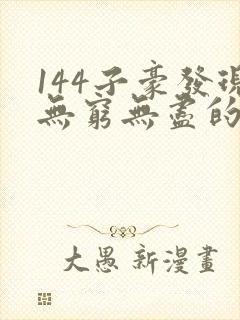 144子豪發現
無窮無盡的
大愚 新漫畫